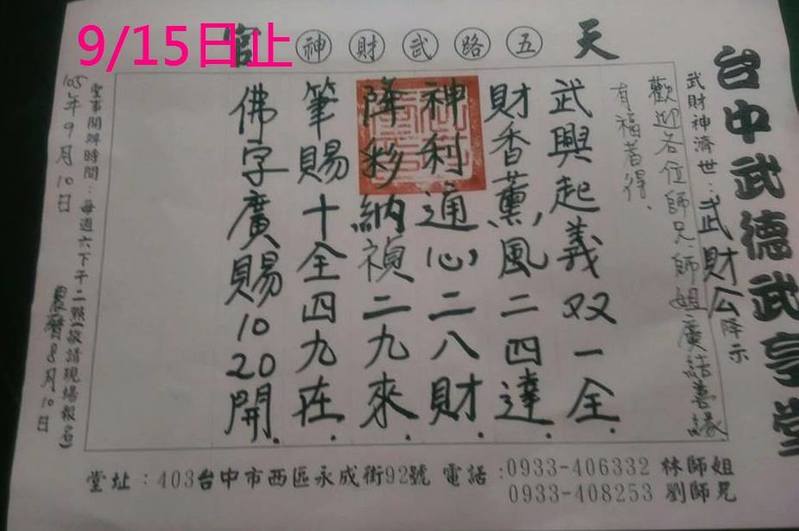 9/15日止
天官
五路武財神
台中武德武亨堂
武財神濟世：武財公降示
歡迎各位師兄師姐廣結善緣
有福著得.
武興起義双一全.
財香薰,風二四達.
神利通心二八財.
降彩納禎二九來.
筆賜十全四九在.
佛字廣賜1020開.
堂事開辦時間：每週六下午二點(敬請現場報名)
105年9月10日
農曆8月10日
堂址：403台中市西區永成街92號 電話：0933-406332 林師姐
0933-408253 劉師兄